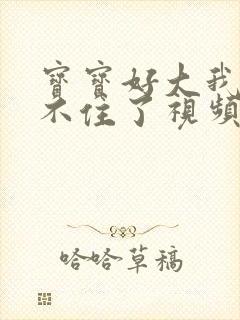 寶寶好大我
不住了視頻
哈哈草稿